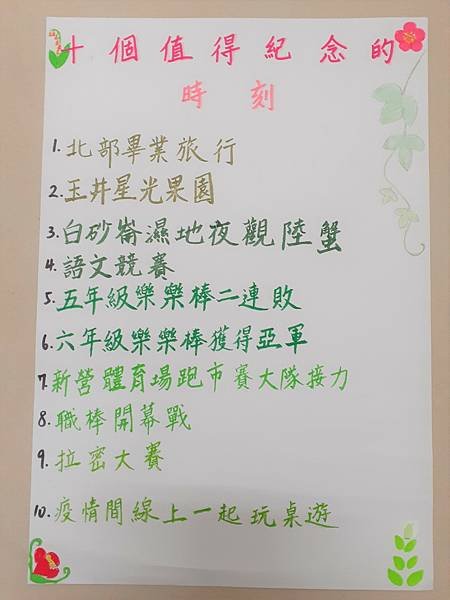 十個值得紀念的
時刻
1. 北部畢業旅行
2. 玉井星光果園
3. 白砂崙濕地夜觀陸蟹
4. 語文競賽
5. 五年級樂樂棒二連敗
6. 六年級樂樂棒獲得亞軍
7. 新營體育場跑市賽大隊接力
8. 職棒開幕戰
9. 拉密大賽
10. 疫情間線上一起玩桌遊